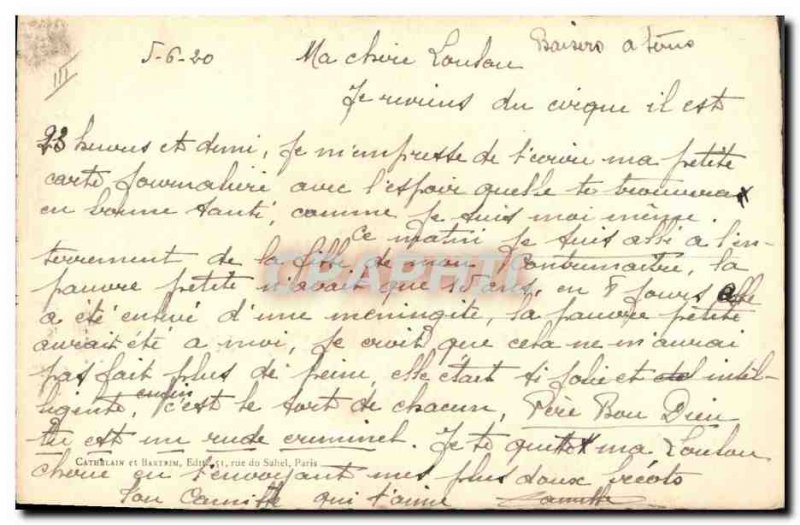 III
5-6-20 Ma chere Loulou Baisers a tous
Je reviens du cirque il est
23 heures et demi, Je m'empresse de t'ecrire ma petite
carte Journaliere avec l'espoir quelle te trouvera
en bonne santé, comme je suis moi même.
Ce matin je suis allé a l'en-
terrement de la fille de mon Contremaitre, la
pauvre petite n'avait que 15 ans, en 8 jours elle
a été enlevé d'une meningite, la pauvre petite
aurait été a moi, Je crois que cela ne m'aurai
pas fait plus de peine, elle était si jolie et intel-
ligente, enfin c'est le sort de chacun, Père Bon Dieu
tu est un rude criminel. Je te quitte ma Loulou
CATHELAIN et BARTRIM, Edit. 51, rue du Sahel, Paris
cherie en t'envoyant mes plus doux becots
Ton Camille qui t'aime Camille